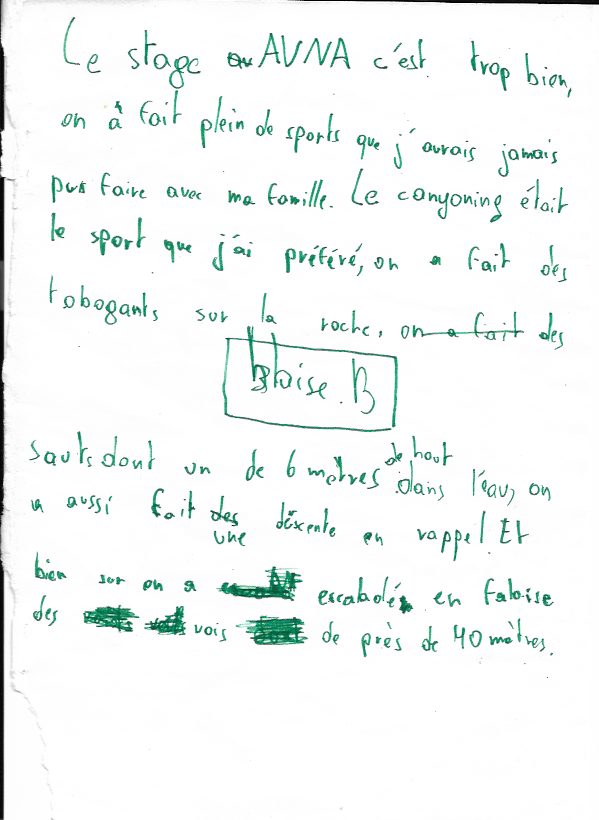 Le stage au AVNA c'est trop bien,
on à fait plein de sports que j'aurais jamais
pus faire avec ma famille. Le canyoning était
le sport que j'ai préféré, on a fait des
tobogants sur la roche, on a fait des
Blaise.B
sauts dont un de 6 mètres de haut dans l'eau, on
a aussi fait des une descente en rappel. Et
bien sur on a escaladé en falaise
des vois de près de 40 mètres.